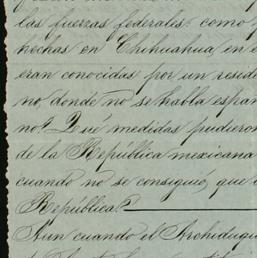 las fuerzas federales: como
hechas en Chihuahua, en e
eran conocidas por un reside
no, donde no se habla espan
no? Qué medidas pudieron
de la República mexicana
cuando no se consiguió, que
República?
Aun cuando el Archiduqu